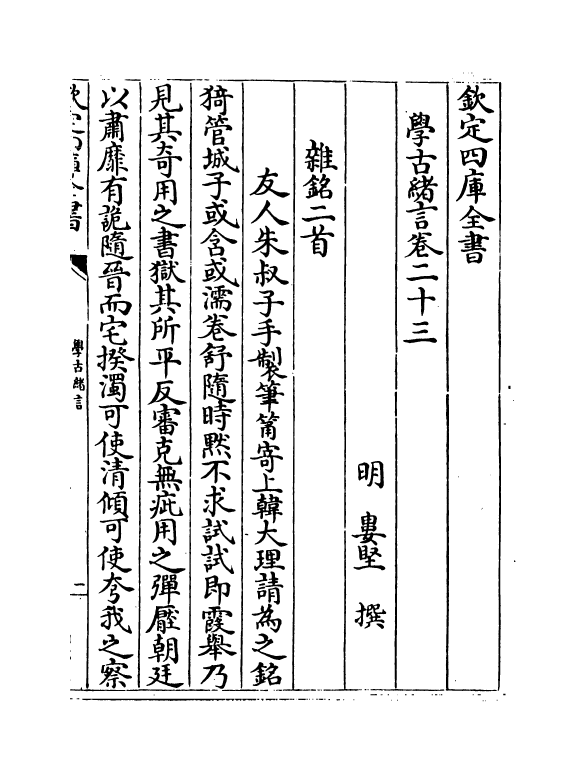 欽定四庫全書
學古緒言卷二十三
明 婁堅 撰
雜銘二首
友人朱叔子手製筆筩寄上韓大理請為之銘
猗管城子或含或濡卷舒隨時黙不求試試即霞舉乃
見其奇用之書獄其所平反審克無疵用之彈壓朝廷
以肅靡有詭隨晉而宅揆濁可使清傾可使夸我之察
欽定四庫全書
學古緒言